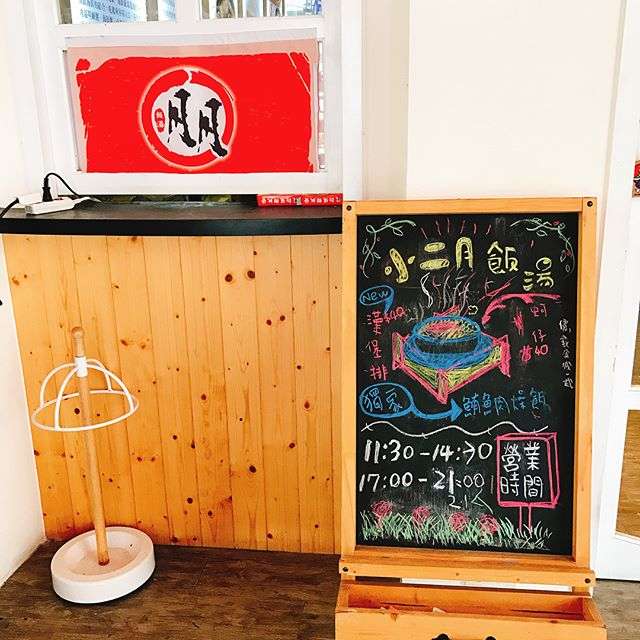 朋
小二月飯湯
New
漢堡排
蚵仔
獨家
鮪魚肉燥飯
11:30-14:30
17:00-21:00
營業
時間